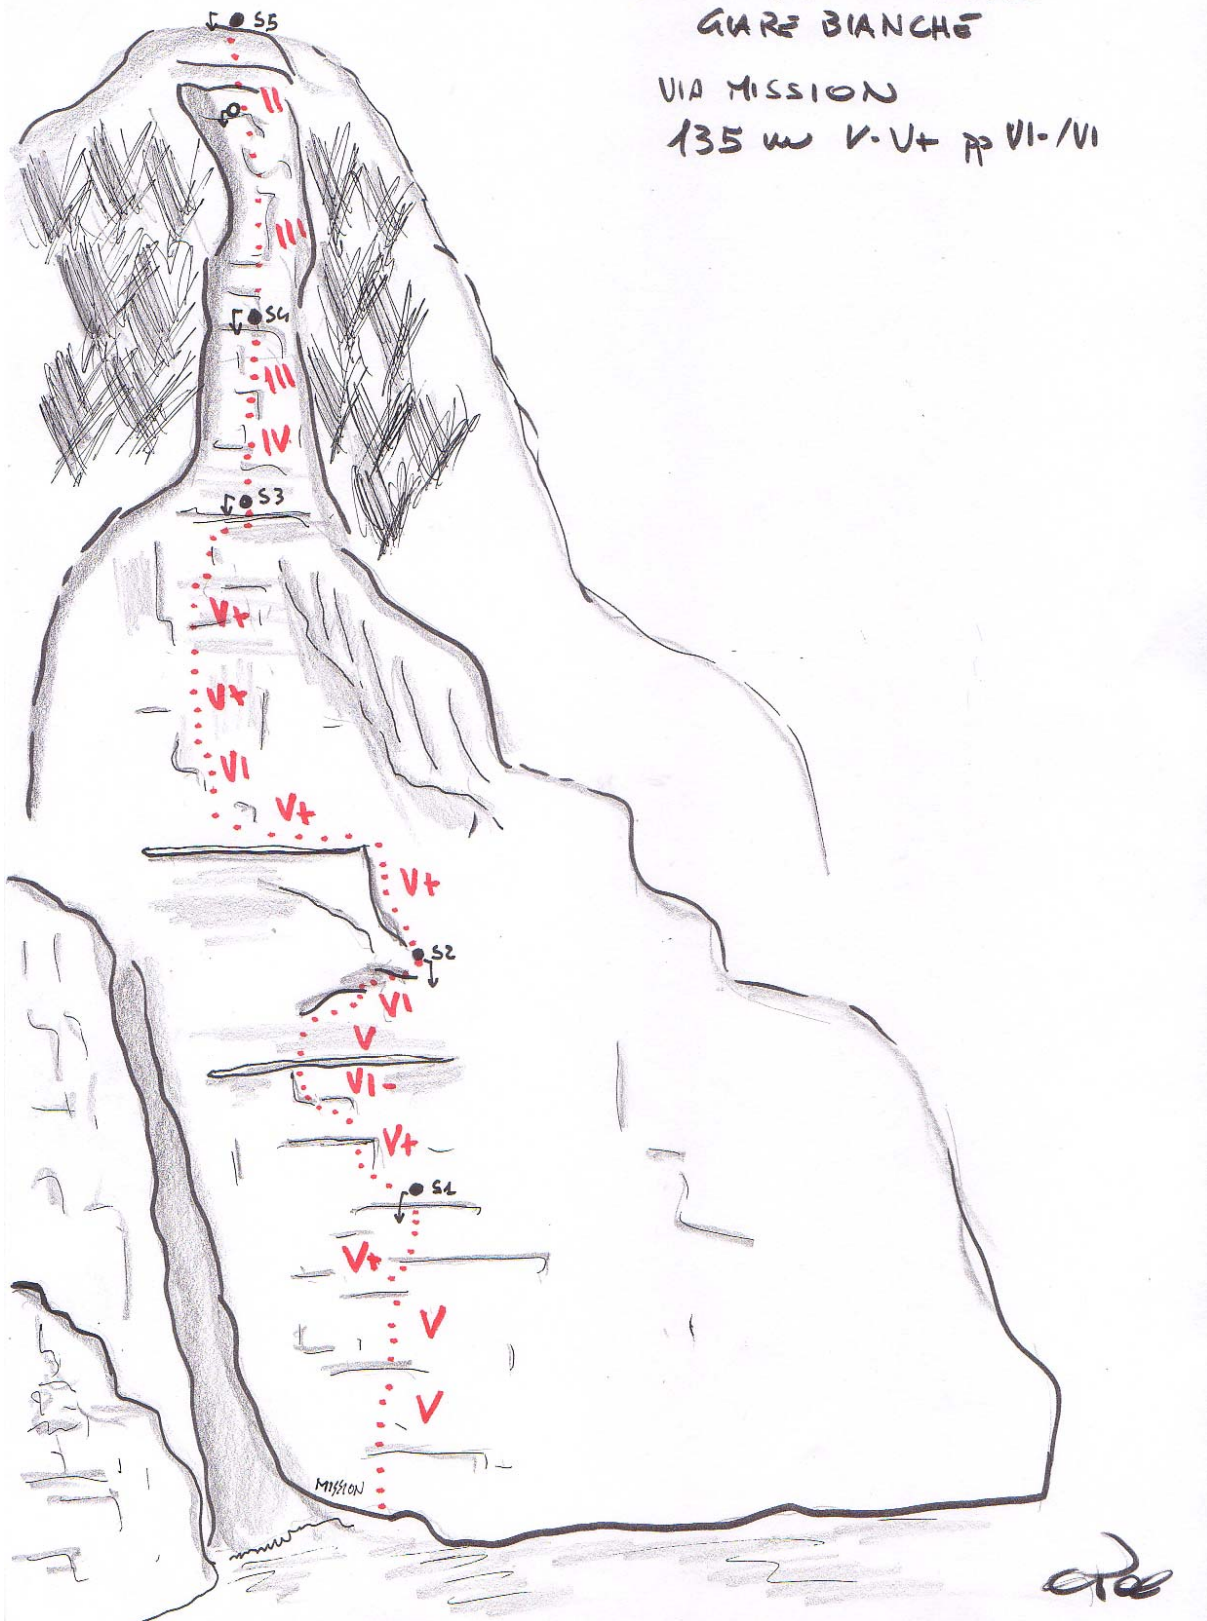 GIARE BIANCHE
VIA MISSION
135 m V-V+ pp VI-/VI
S5
II
III
S4
III
IV
S3
V+
V+
VI
V+
V+
S2
VI
V
VI-
V+
S1
V+
V
V
MISSION